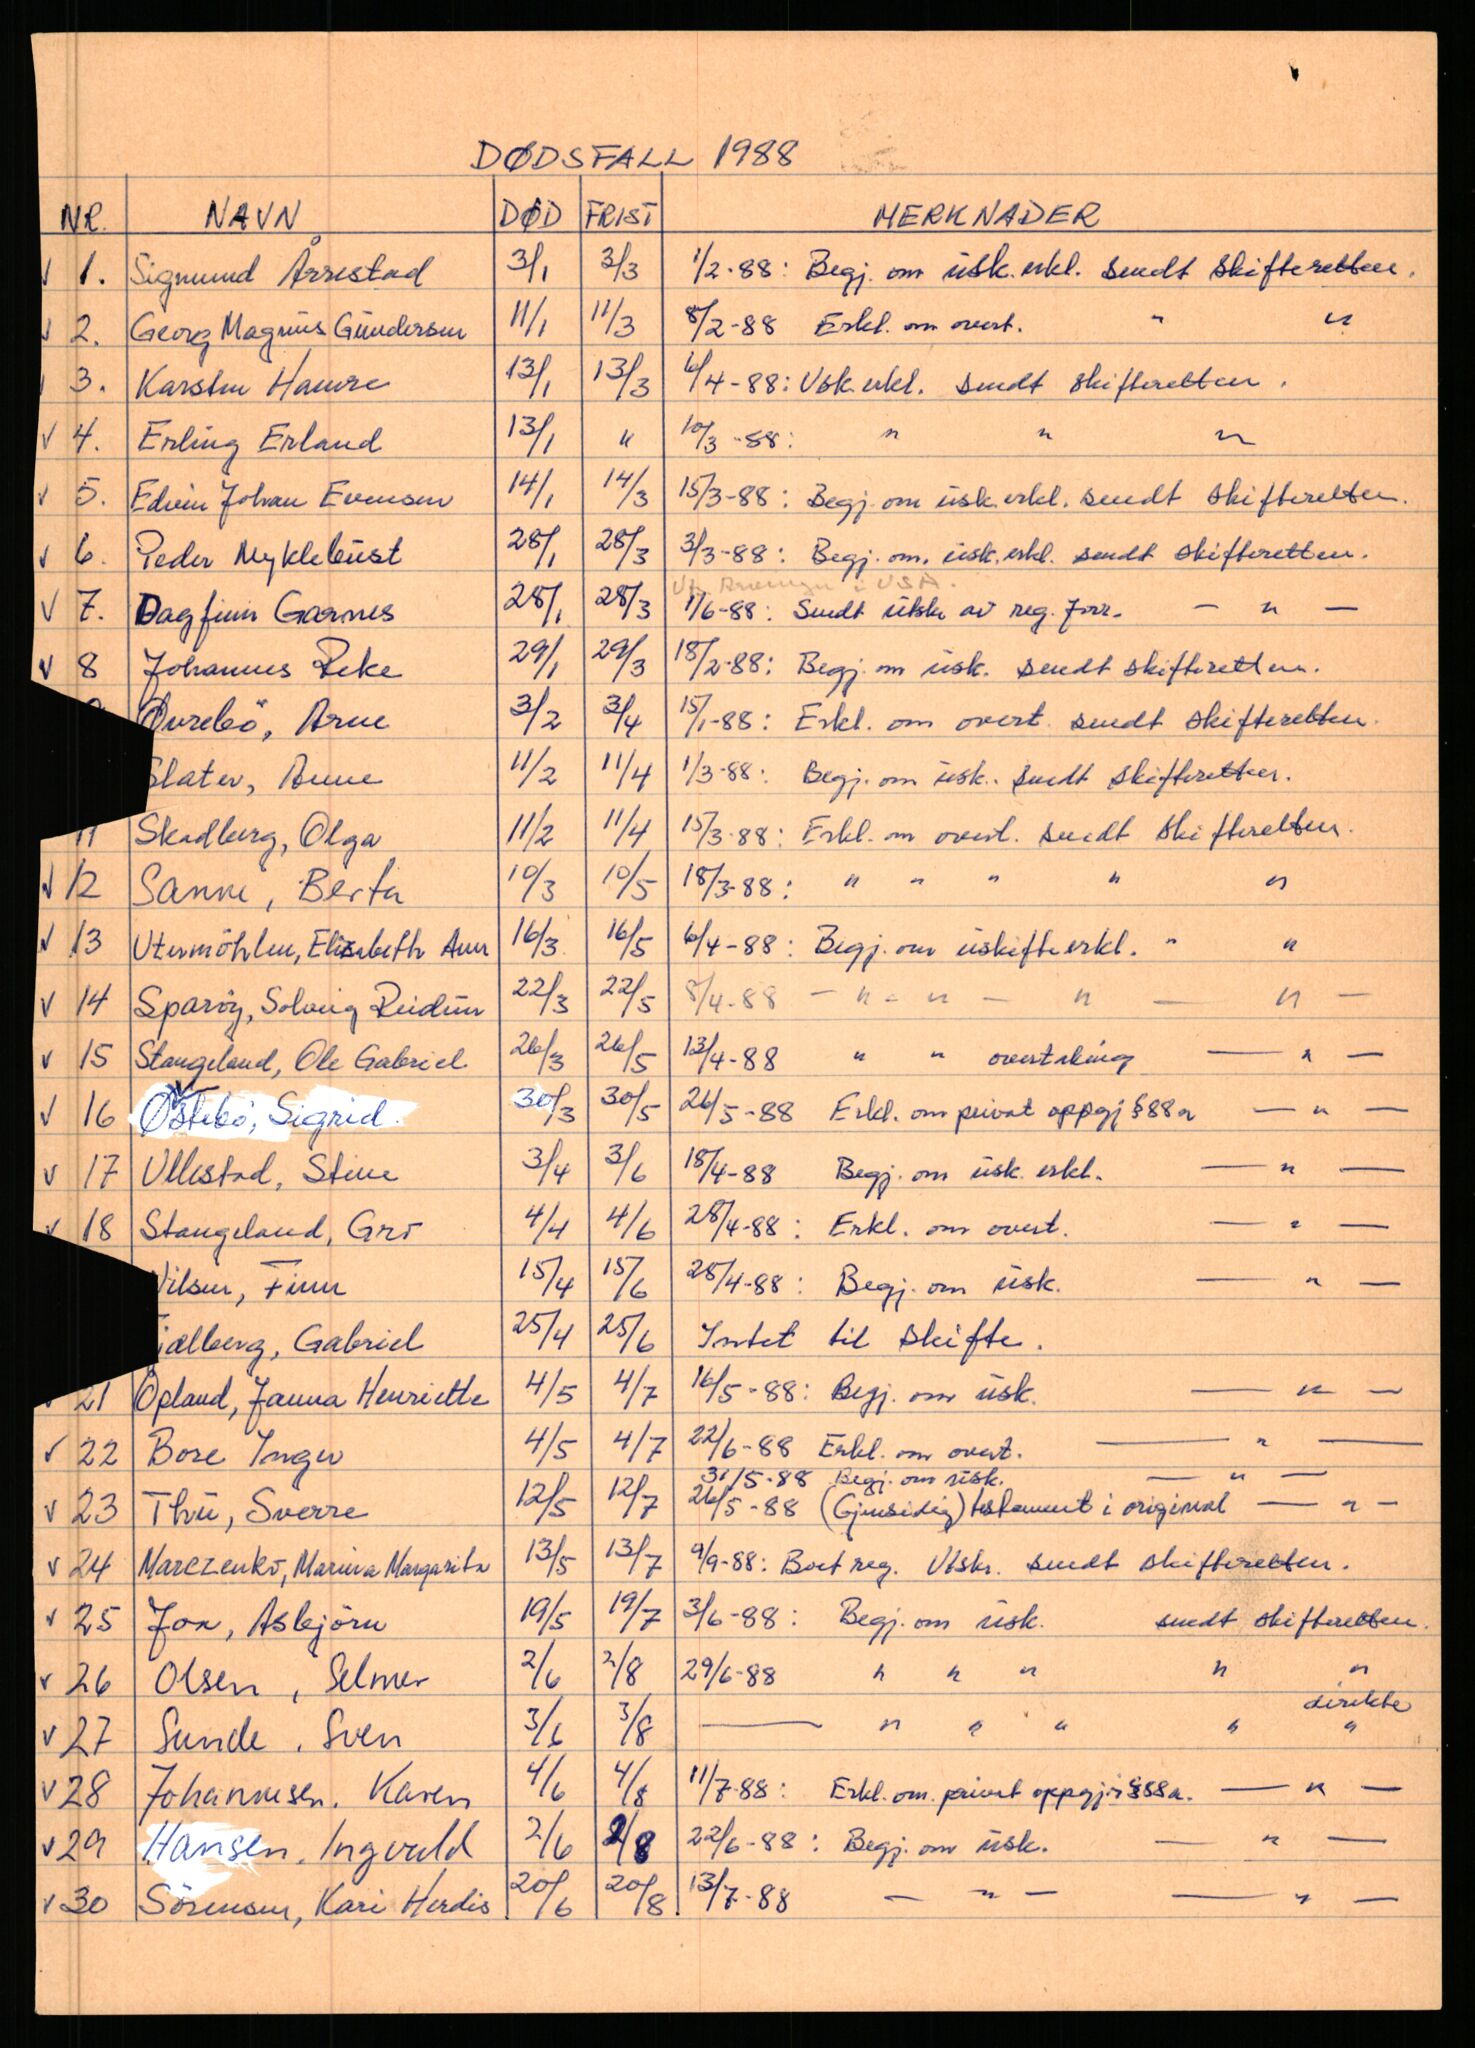 DØDSFALL 1988
NR. NAVN DØD FRIST MERKNADER
√ 1. Sigmund Årrestad 3/1 3/3 1/2-88: Begj. om usk. erkl. sendt skifteretten.
√ 2. Georg Magnus Gundersen 11/1 11/3 8/2-88 Erkl. om overt. " "
3. Karsten Hamre 13/1 13/3 6/4-88: Usk.erkl. sendt skifteretten.
√ 4. Erling Erland 13/1 " 10/3-88: " " "
√ 5. Edvin Johan Evensen 14/1 14/3 15/3-88: Begj. om usk.erkl. sendt skifteretten.
√ 6. Peder Myklebust 28/1 28/3 3/3-88: Begj. om. usk.erkl. sendt skifteretten.
i USA.
√ 7. Dagfinn Garnes 28/1 28/3 1/6-88: Sendt utskr. av reg.forr. — " —
√ 8 Johannes Reke 29/1 29/3 18/2-88: Begj. om usk. sendt skifteretten.
Øvrebö, Arne 3/2 3/4 15/1-88: Erkl. om overt. sendt skifteretten.
Slater, Anne 11/2 11/4 1/3-88: Begj. om usk. sendt skifteretten.
11 Skadberg, Olga 11/2 11/4 15/3-88: Erkl. om overt. sendt skifteretten.
√ 12 Sanne, Berta 10/3 10/5 18/3-88: " " " " "
√ 13 Utermöhlen, Elisabeth Ann 16/3 16/5 6/4-88: Begj. om uskifteerkl. " "
√ 14 Sparöy, Solveig Reidun 22/3 22/5 8/4-88 — " — " — " — " —
√ 15 Stangeland, Ole Gabriel 26/3 26/5 13/4-88 " " overtaking — " —
√ 16 Østebö, Sigrid. 30/3 30/5 26/5-88 Erkl. om privat oppgj §88a — " —
√ 17 Ullestad, Stine 3/4 3/6 18/4-88 Begj. om usk. erkl. — " —
√ 18 Stangeland, Gro 4/4 4/6 28/4-88: Erkl. om overt. — " —
Nilsen, Finn 15/4 15/6 28/4-88: Begj. om usk. — " —
Fjælberg, Gabriel 25/4 25/6 Intet til skifte.
21 Opland, Janna Henriette 4/5 4/7 16/5-88: Begj. om usk. — " —
√ 22 Bore Inger 4/5 4/7 22/6-88 Erkl. om overt. — " —
31/5-88 Begj. om usk. — " —
√ 23 Thu, Sverre 12/5 12/7 26/5-88 (Gjensidig) testament i original — " —
√ 24 Marczenko, Marina Margarita 13/5 13/7 9/9-88: Boet reg. Utskr. sendt skifteretten.
√ 25 Fox, Asbjörn 19/5 19/7 3/6-88: Begj. om usk. sendt skifteretten.
√ 26 Olsen, Selmer 2/6 2/8 29/6-88 " " " " "
direkte
√ 27 Sunde, Sven 3/6 3/8 — " " " " "
√ 28 Johannesen, Karen 4/6 4/8 11/7-88: Erkl. om. privat oppgj. § 88a. — " —
√ 29 Hansen, Ingvald 2/6 2/8 22/6-88: Begj. om usk. — " —
√ 30 Sörensen, Kari Herdis 20/6 20/8 13/7-88 — " — — " —